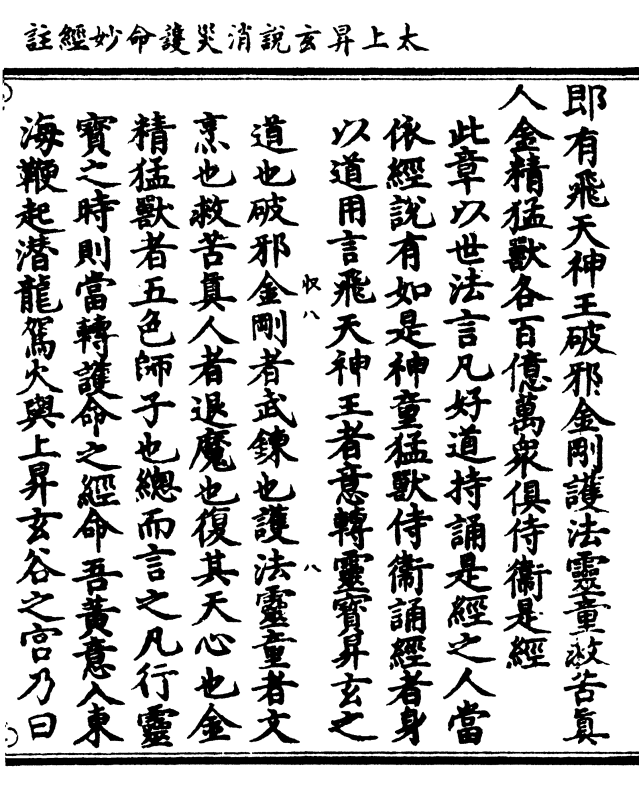 太上昇玄說消災護命妙經註
即有飛天神王破邪金剛護法靈童救苦眞
人金精猛獸各百億萬衆俱侍衞是經
此章以世法言凡好道持誦是經之人當
依經說有如是神童猛獸侍衞誦經者身
以道用言飛天神王者意轉靈寶昇玄之
収八 八
道也破邪金剛者武鍊也護法靈童者文
烹也救苦眞人者退魔也復其天心也金
精猛獸者五色師子也總而言之凡行靈
寶之時則當轉護命之經命吾黃意入東
海鞭起潜龍駕火與上昇玄谷之宮乃曰